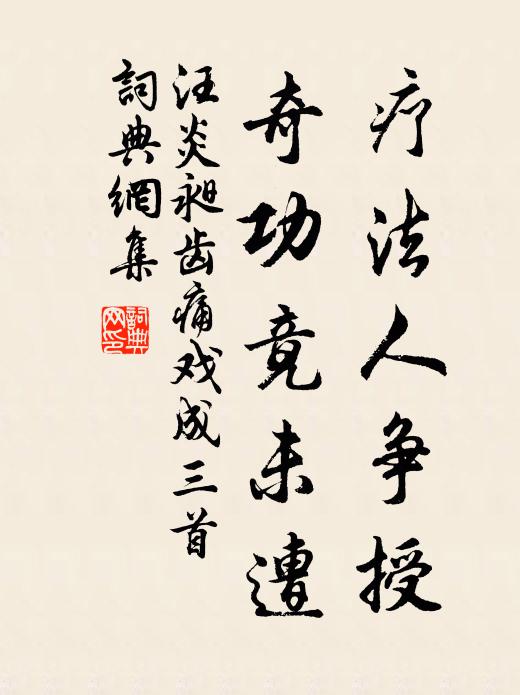 疗法人争授
奇功竟未遭
汪炎昶齿痛戏成三首
詞典網集
詞典
网印